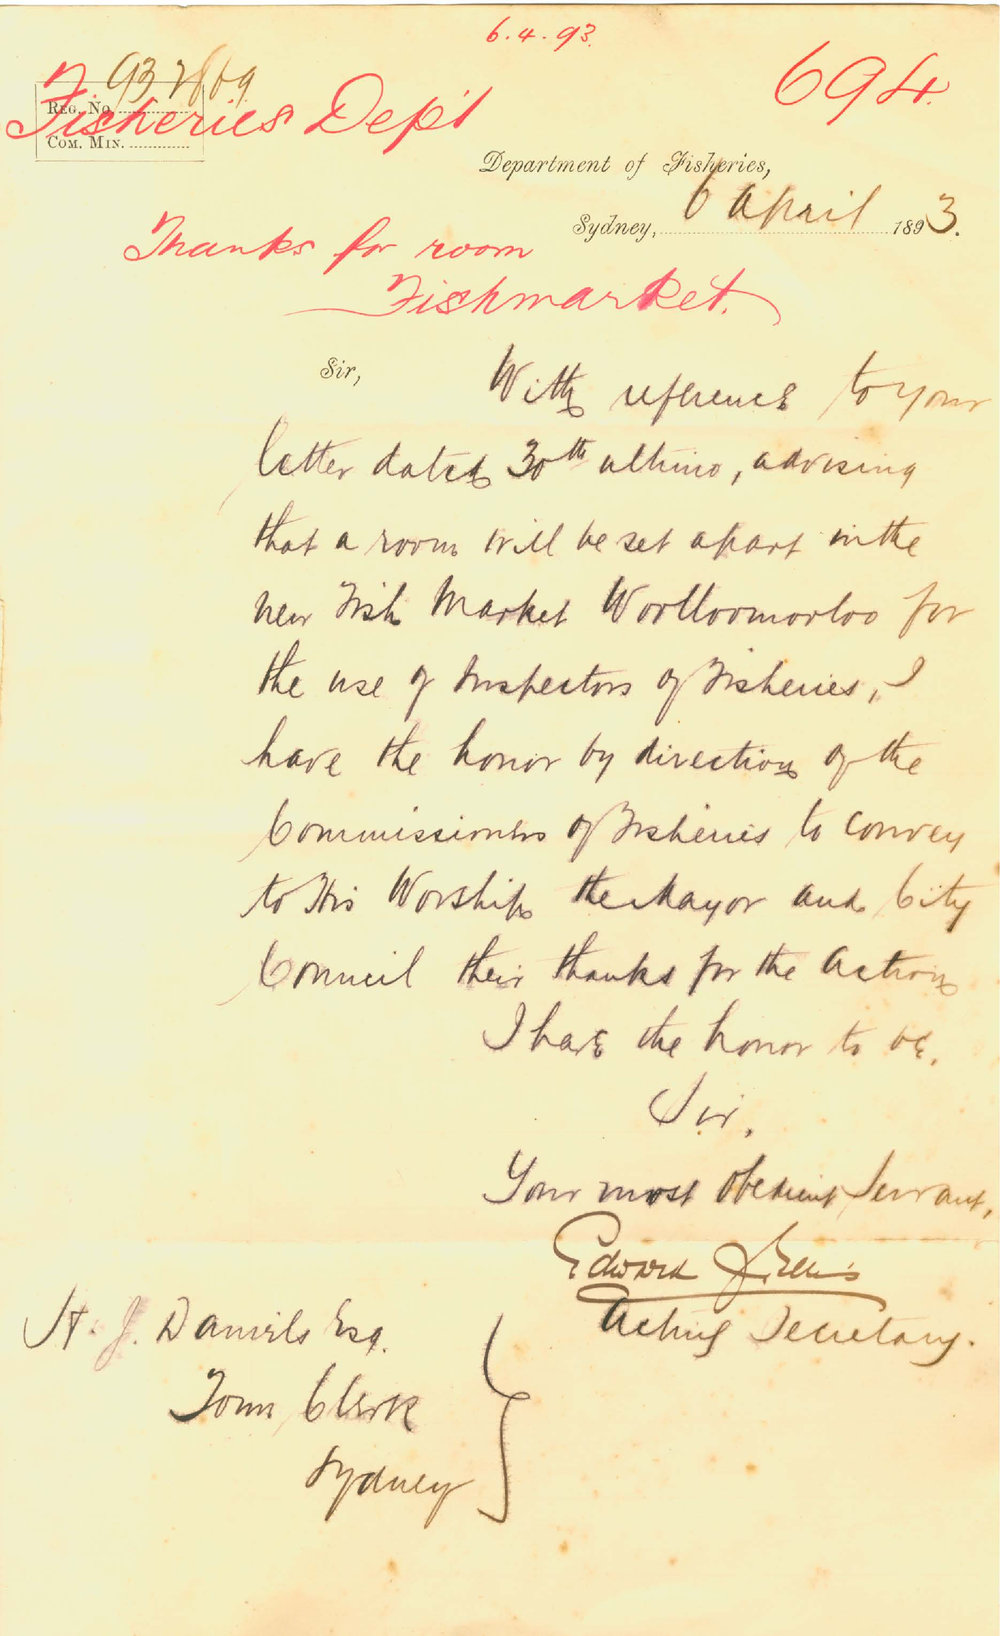 6.4.93.
694.
93 2869
Reg. No.
Fisheries Dep't
Com. Min.
Department of Fisheries,
Sydney, 6 April 1893.
Thanks for room
Fishmarket.
Sir,
With reference to your
letter dated 30th ultimo, advising
that a room will be set apart in the
new Fish Market Woolloomooloo for
the use of Inspectors of Fisheries, I
have the honor by direction of the
Commissioners of Fisheries to convey
to His Worship the Mayor and City
Council their thanks for the action
I have the honor to be.
Sir,
Your most obedient servant,
Edward J. Ellis
Acting Secretary.
H. J. Daniels Esq.
Town Clerk
Sydney